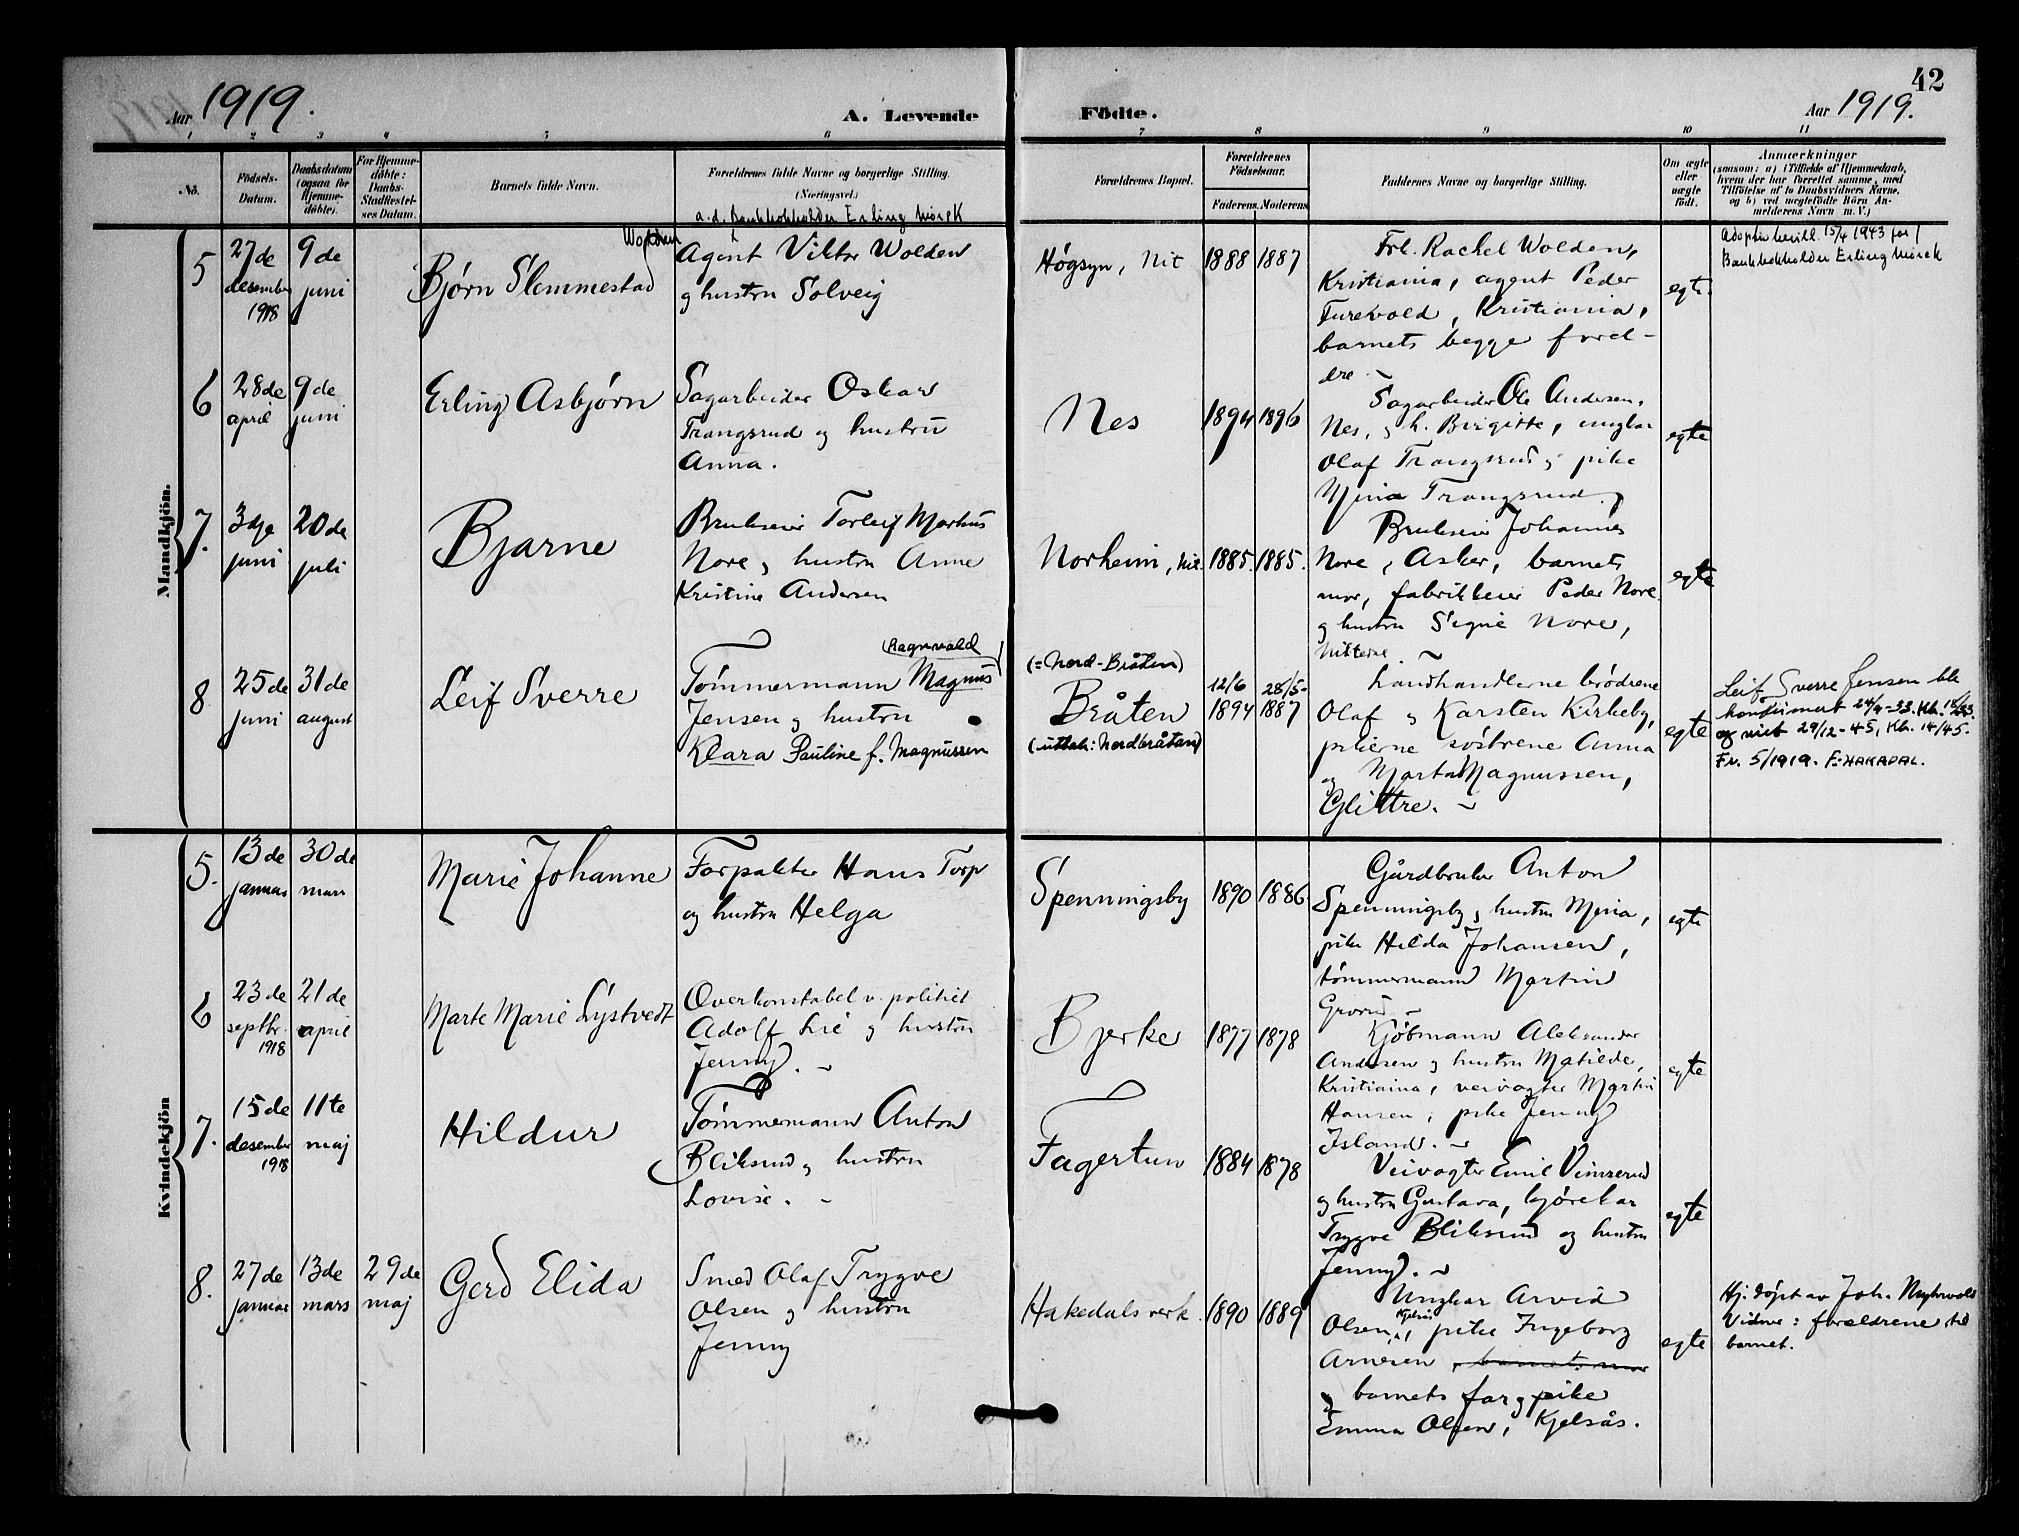 42
Aar 1919.
A. Levende
Födte.
Aar 1919.
1 2 3 4 5 6 7 8 9 10 11
No.
Födsels-
Datum.
Daabsdatum
(ogsaa for
Hjemme-
döbte).
For Hjemme-
döbte:
Daabs-
Stadfæstel-
ses Datum.
Barnets fulde Navn.
Forældrenes fulde Navne og borgerlige Stilling.
(Næringsvei.)
Forældrenes Bopæl.
Forældrenes
Födselsaar.
Faderens. Moderens.
Faddernes Navne og borgerlige Stilling.
Om ægte
eller
uægte
födt.
Anmærkninger
(saasom: a) i Tilfælde af Hjemmedaab,
hvem der har forrettet samme, med
Tilföielse af to Daabsvidners Navne,
og b) ved uægtefödte Börn An-
melderens Navn m. V.)
Mandkjön.
5
27de
desember
1918
9de
juni
Wolden
Bjørn Slemmestad
a.d. Bankbokholder Erling Mørck
Agent Viktor Wolden
og hustru Solveig
Høgsyn, Nit
1888
1887
Frl. Rachel Wolden,
Kristiania, agent Peder
Furevold, Kristiania,
barnets begge forel-
dre.
egte
Adoptivbevill. 15/4 1943 for
Bankbokholder Erling Mørck
6
28de
april
9de
juni
Erling Asbjørn
Sagarbeider Oskar
Trangsrud og hustru
Anna.
Nes
1894
1896
Sagarbeider Ole Andersen,
Nes, og h. Birgitte, ungkar
Olaf Trangsrud og pike
Mina Trangsrud.
egte
7.
3dje
juni
20de
juli
Bjarne
Brukseier Torleif Markus
Nore og hustru Anne
Kristine Andersen
Norheim, Nit.
1885.
1885.
Brukseier Johannes
Nore, Asker, barnets
mor, fabrikkeier Peder Nore
og hustru Signe Nore,
Nittedal.
egte
8
25de
juni
31de
august
Leif Sverre
(Ragnvald
Tømmermann Magnus
Jensen og hustru
Klara Pauline f. Magnussen
(= Nord-Bråten)
Bråten
(uttak: Nordbråtan)
12/6
1894
28/5-
1887
Landhandlerne brødrene
Olaf og Karsten Kirkeby,
pikerne søstrene Anna
og Marta Magnussen,
Glittre.
egte
Leif Sverre Jensen ble
konfirmert 24/9-33. Kb.
og viet 29/12-45, Kb. 14/45.
Fv. 5/1919. F: HAKADAL.
Kvindekjön
5.
13de
januar
30de
mars
Marie Johanne
Forpakter Hans Torp
og hustru Helga
Spenningsby
1890
1886
Gårdbruker Anton
Spenningsby og hustru Mina,
pike Hilda Johansen,
tømmermann Martin
Grorud
egte
6
23de
septbr.
1918
21de
april
Marte Marie Lystvedt
Overkonstabel v. politiet
Adolf Lie og hustru
Jenny.
Bjerke
1877
1878
Kjøbmann Aleksander
Andersen og hustru Matilde,
Kristiania, veivogter Martin
Hansen, pike Jenny
Island.
egte
7.
15de
desember
1918
11te
maj
Hildur
Tømmermann Anton
Bliksrud og hustru
Lovise.
Fagertun
1884
1878
Veivogter Emil
og hustru Gustava, kjørekar
Trygve Bliksrud og hustru
Jenny.
egte
8.
27de
januar
13de
mars
29de
maj
Gerd Elida
Smed Olaf Trygve
Olsen og hustru
Jenny
Hakedals verk
1890
1889
Ungkar Arvid
Olsen, Kjelsås, pike Ingeborg
Arnesen, barnets mor
og barnets far og pike
Emma Olsen, Kjelsås.
egte
Hj. døpt av Joh. Myhrvold
Vidner: foreldrene til
barnet.